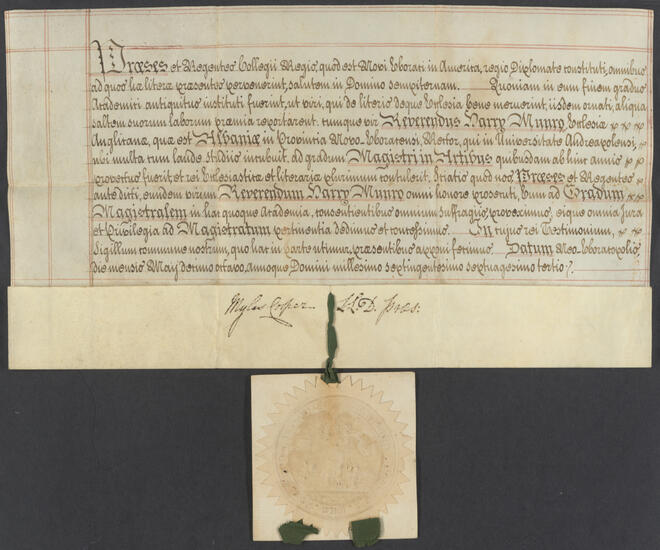 Præses et Regentes Collegii Regis, quod est Novi Eborati in America, regio Diplomate constituti, omnibus
ad quos hæ literæ præsentes pervenerint, salutem in Domino sempiternam. Quoniam in eum finem gradus
Academici antiquitus instituti fuerint, ut viri, qui de literis deque Ecclesia bene meruerint, iisdem ornati, aliqua
saltem suorum laborum præmia reportarent. cumque vir Reverendus Harry Munro Ecclesiæ
Anglicanæ, quæ est Albaniæ in Provincia Novo-Eboracensi, Rector, qui in Universitate Andreapolensi,
ubi multa cum laude studiis incubuit, ad gradum Magistri in Artibus quibusdam ab hinc annis
provectus fuerit et rei Ecclesiasticæ et literariæ plurimum contulerit. Sciatis quod nos Præses et Regentes
ante dicti, eundem virum Reverendum Harry Munro omni honore prosecuti, Eum ad Gradum
Magistralem in hac quoque Academia, consentientibus omnium suffragiis, proveximus, eique omnia Jura
et Privilegia ad Magistratum pertinentia dedimus et concessimus. In cujus rei Testimonium,
Sigillum commune nostrum, quo hac in parte utimur, præsentibus apponi fecimus. Datum Neo-Eboracopolis,
die mensis Maij decimo octavo, annoque Domini millesimo septingentesimo septuagesimo tertio.
Myles Cooper LL.D. Præs: